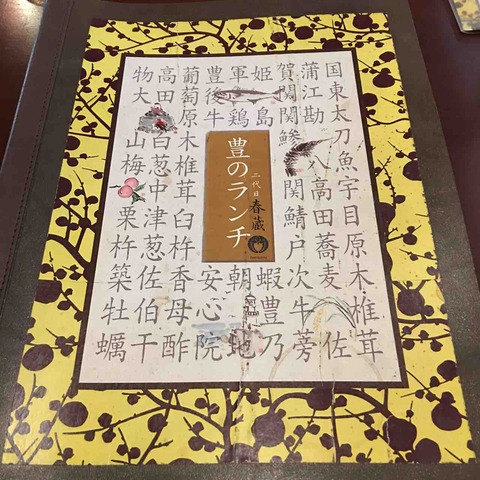 国東太刀魚宇目原木椎茸
蒲江勘八高田蕎麦佐
賀関関鯵関鯖戸次牛蒡
姫島蝦豊乃
軍鶏朝地
豊後牛安心院
葡萄原木椎茸臼杵香母酢
高田白葱中津葱佐伯干
物大山梅栗杵築牡蠣
豊のランチ
二代目
春蔵